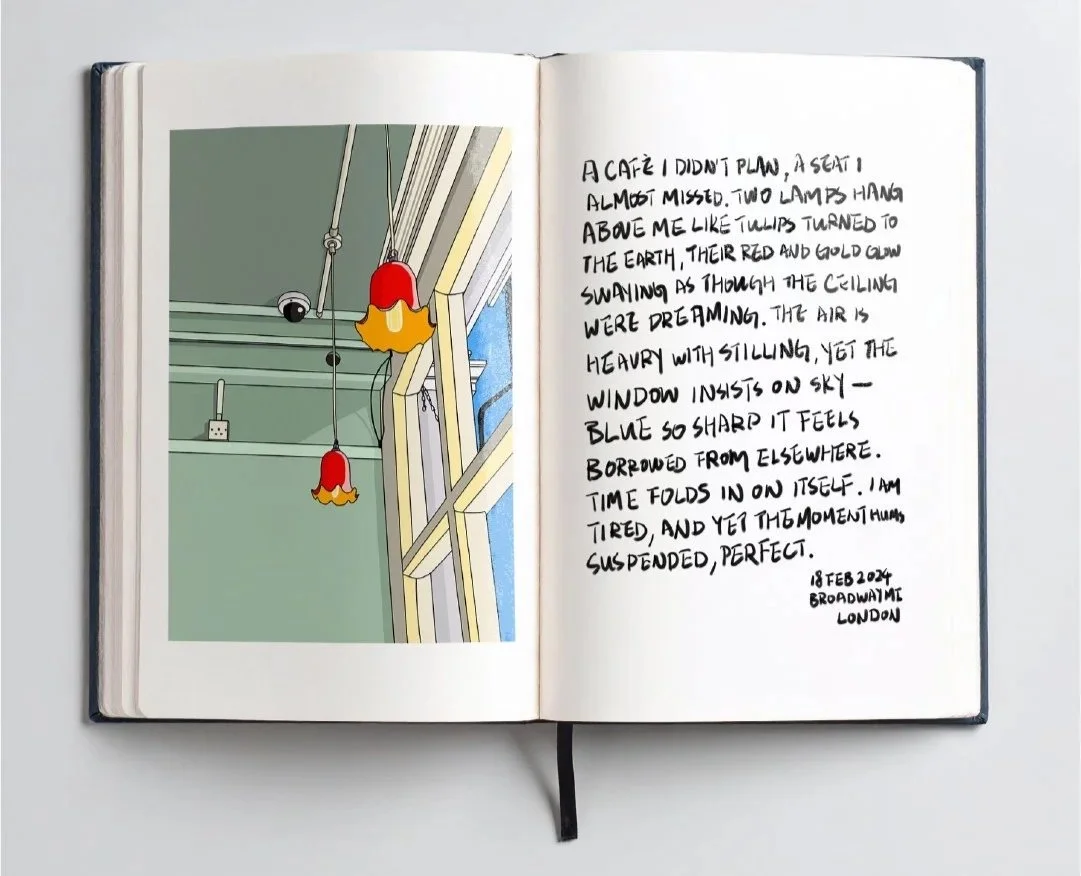 A CAFÈ I DIDN'T PLAN, A SEAT I
ALMOST MISSED. TWO LAMPS HANG
ABOVE ME LIKE TULIPS TURNED TO
THE EARTH, THEIR RED AND GOLD GLOW
SWAYING AS THOUGH THE CEILING
WERE DREAMING. THE AIR IS
HEAVRY WITH STILLING, YET THE
WINDOW INSISTS ON SKY —
BLUE SO SHARP IT FEELS
BORROWED FROM ELSEWHERE.
TIME FOLDS IN ON ITSELF. I AM
TIRED, AND YET THE MOMENT HUMS
SUSPENDED, PERFECT.
18 FEB 2024
BROADWAY MI
LONDON